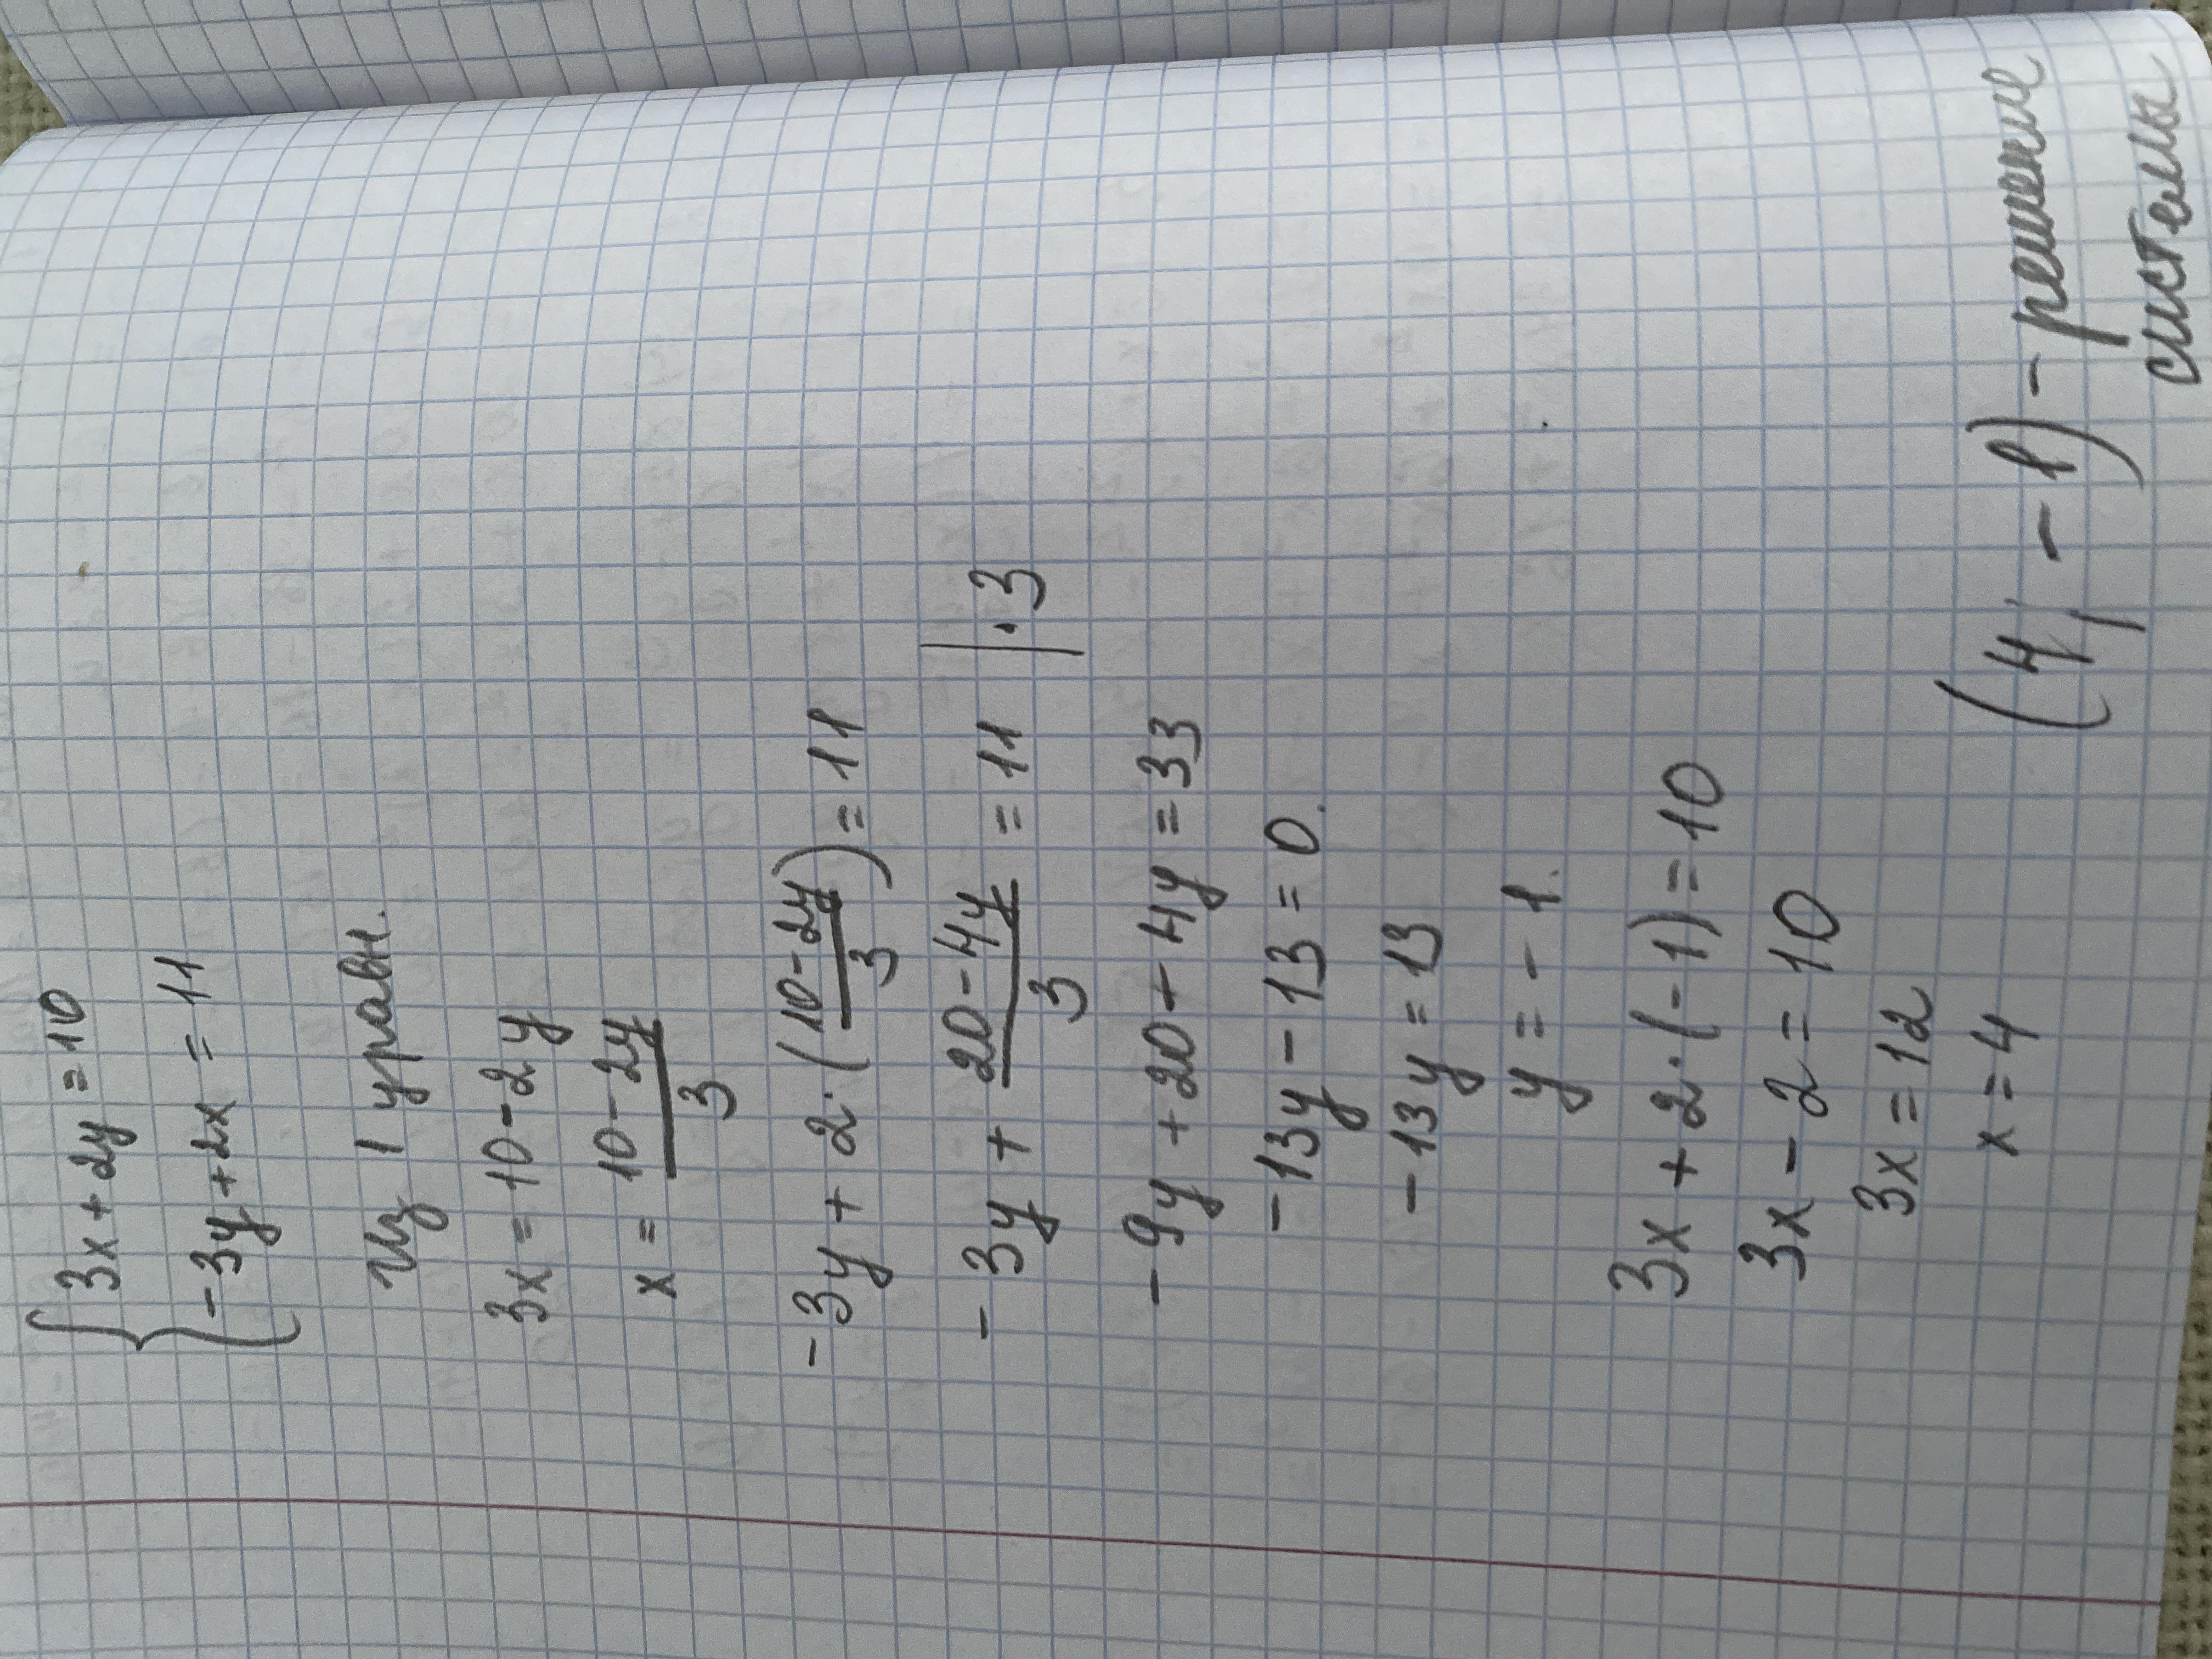 { 3x + 2y = 10
-3y + 2x = 11
Из 1 уравн.
3x = 10 - 2y
x = (10 - 2y)/3
-3y + 2·((10 - 2y)/3) = 11
-3y + (20 - 4y)/3 = 11 | · 3
-9y + 20 - 4y = 33
-13y - 13 = 0.
-13y = 13
y = -1.
3x + 2·(-1) = 10
3x - 2 = 10
3x = 12
x = 4
(4, -1) - решение
системы